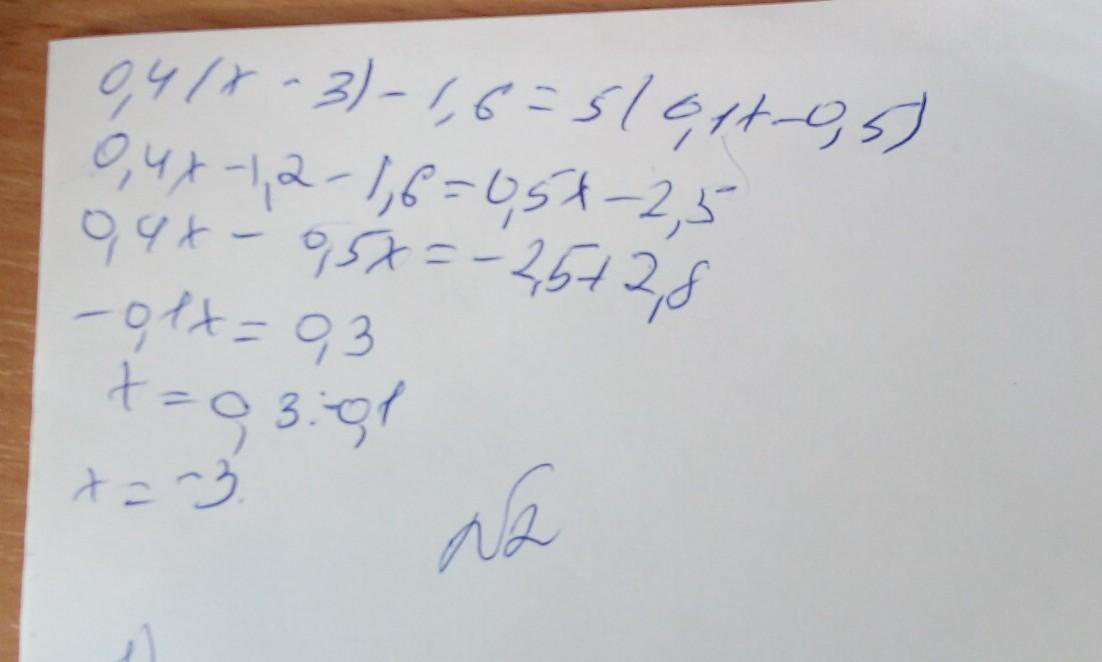 0,4(x - 3) - 1,6 = 5(0,1x - 0,5)
0,4x - 1,2 - 1,6 = 0,5x - 2,5
0,4x - 0,5x = -2,5 + 2,8
-0,1x = 0,3
x = 0,3 : -0,1
x = -3.
№2
1)